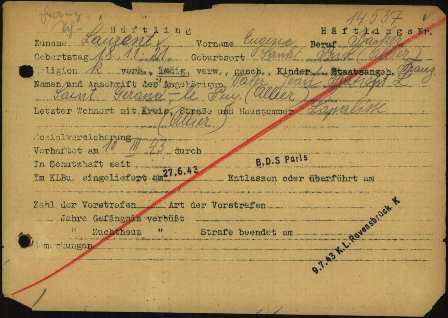 Häftling
Häftlings Nr. 14387
Zuname Laurent Vorname Eugène Beruf
Geburtstag Geburtsort
Religion verh., ledig, verw., gesch. Kinder Staatsangeh. Franz
Namen und Anschrift der Angehörigen
Saint Gerand - le Puy (Allier)
Letzter Wohnort mit Kreis, Straße und Hausnummer Lapalisse
(Allier)
Sozialversicherung
Verhaftet am 10. III. 43 durch
In Schutzhaft seit B.D.S Paris
Im KLBu. eingeliefert am 27.6.43 Entlassen oder überführt am
Zahl der Vorstrafen Art der Vorstrafen
Jahre Gefängnis verbüßt
" Zuchthaus " Strafe beendet am
Bemerkungen
9.7.43 K.L. Ravensbrück K